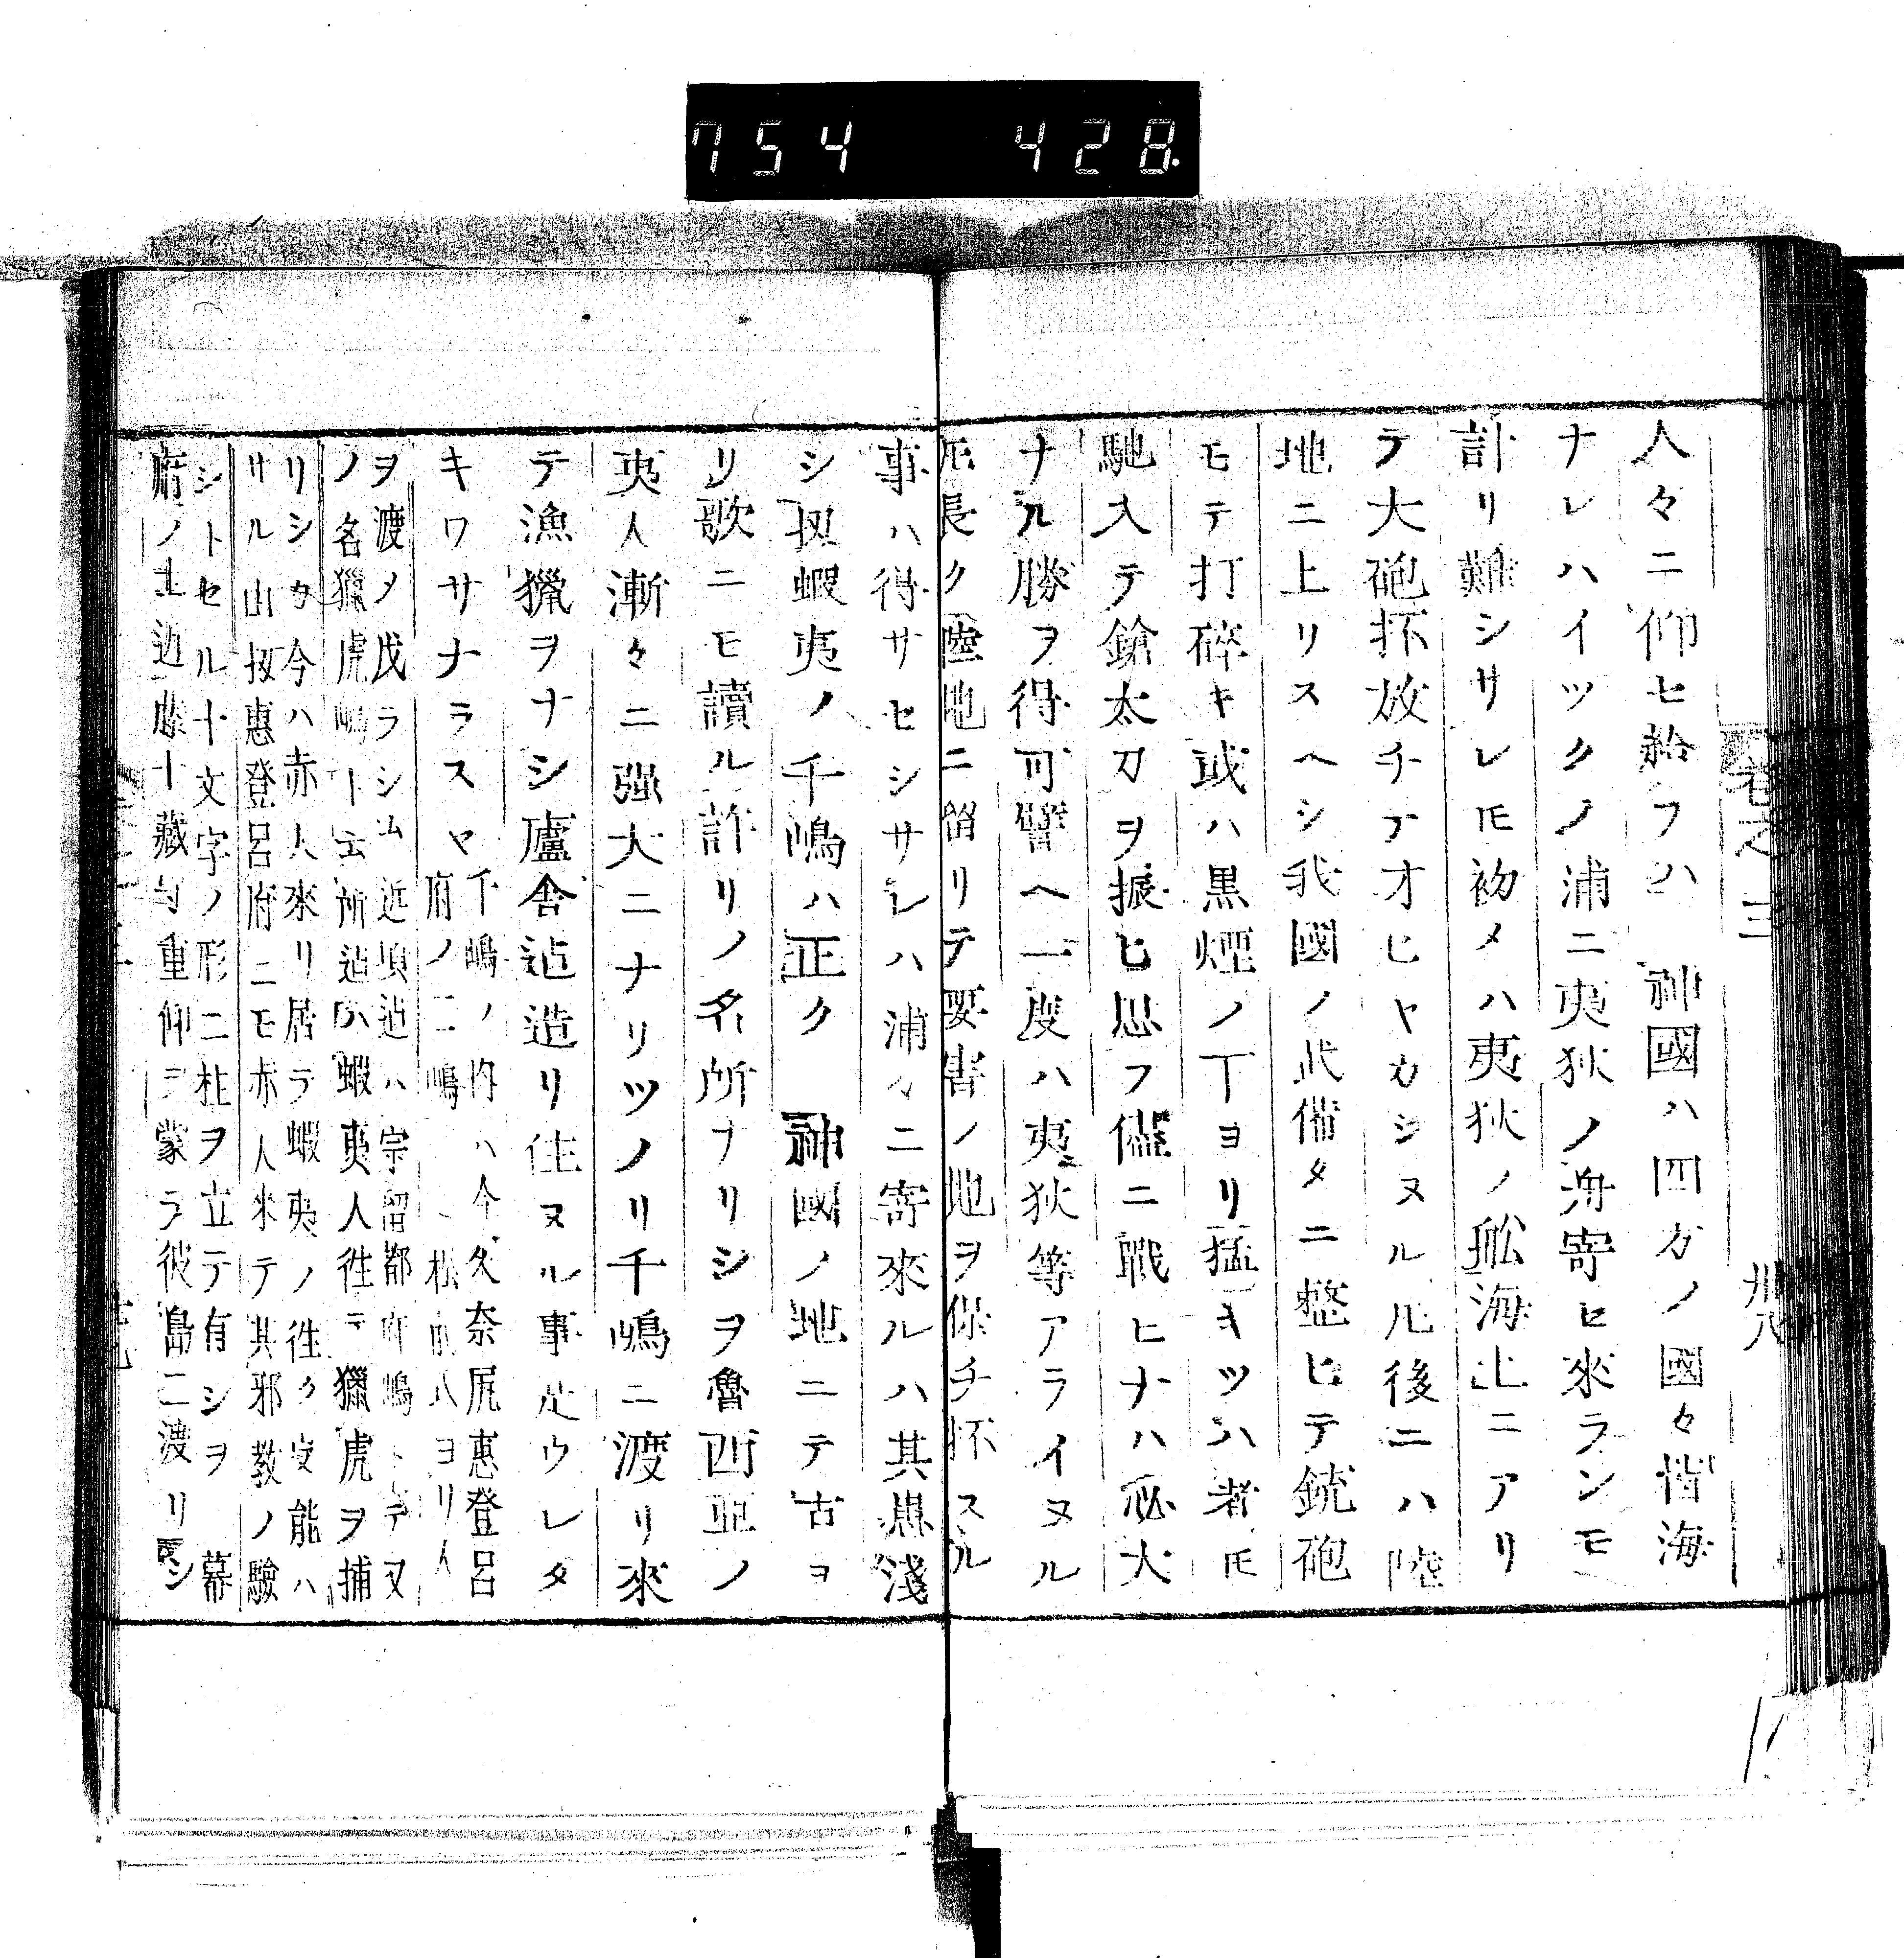 754 428
巻之三 卅八
人々ニ仰セ給フハ 神國ハ四方ノ國々皆海
ナレハイツクノ浦ニ夷狄ノ舟寄ヒ來ランモ
計リ難シサレ𪜈初メハ夷狄ノ舩海上ニアリ
テ大砲抔放チテオヒヤカシヌル𪜈後ニハ陸
地ニ上リスヘシ我國ノ武備タニ整ヒテ銃砲
モテ打碎キ或ハ黒煙ノ下ヨリ猛キツハ者𪜈
馳入テ鎗太刀ヲ振ヒ思フ儘ニ戰ヒナハ必大
ナル勝ヲ得可譬ヘ一度ハ夷狄等アライヌル
𪜈長ク陸地ニ畄リテ要害ノ地ヲ保チ抔スル
事ハ得サセシサレハ浦々ニ寄來ルハ其患淺
シ扨蝦夷ノ千嶋ハ正ク 神國ノ地ニテ古ヨ
リ歌ニモ讀ル許リノ名所ナリシヲ魯西亞ノ
夷人漸々ニ強大ニナリツノリ千嶋ニ渡リ來
テ漁獵ヲナシ廬舎迠造リ住ヌル事是ウレタ
キワサナラスヤ
千嶋ノ内ハ今久奈尻惠登呂
府ノ二嶋 松前ヨリ人
ヲ渡メ戍ラシム近頃迠ハ宗留都府嶋トテ又
ノ名獵虎嶋ト云所迠ハ蝦夷人徃テ獵虎ヲ捕
リシカ今ハ赤人來リ居テ蝦夷ノ徃ク叓能ハ
サル由扨惠登呂府ニモ赤人來テ其邪教ノ驗
シトセル十文字ノ形ニ柱ヲ立テ有シヲ 幕
府ノ士近藤十藏守重仰ヲ蒙ラ彼島ニ渡リシ